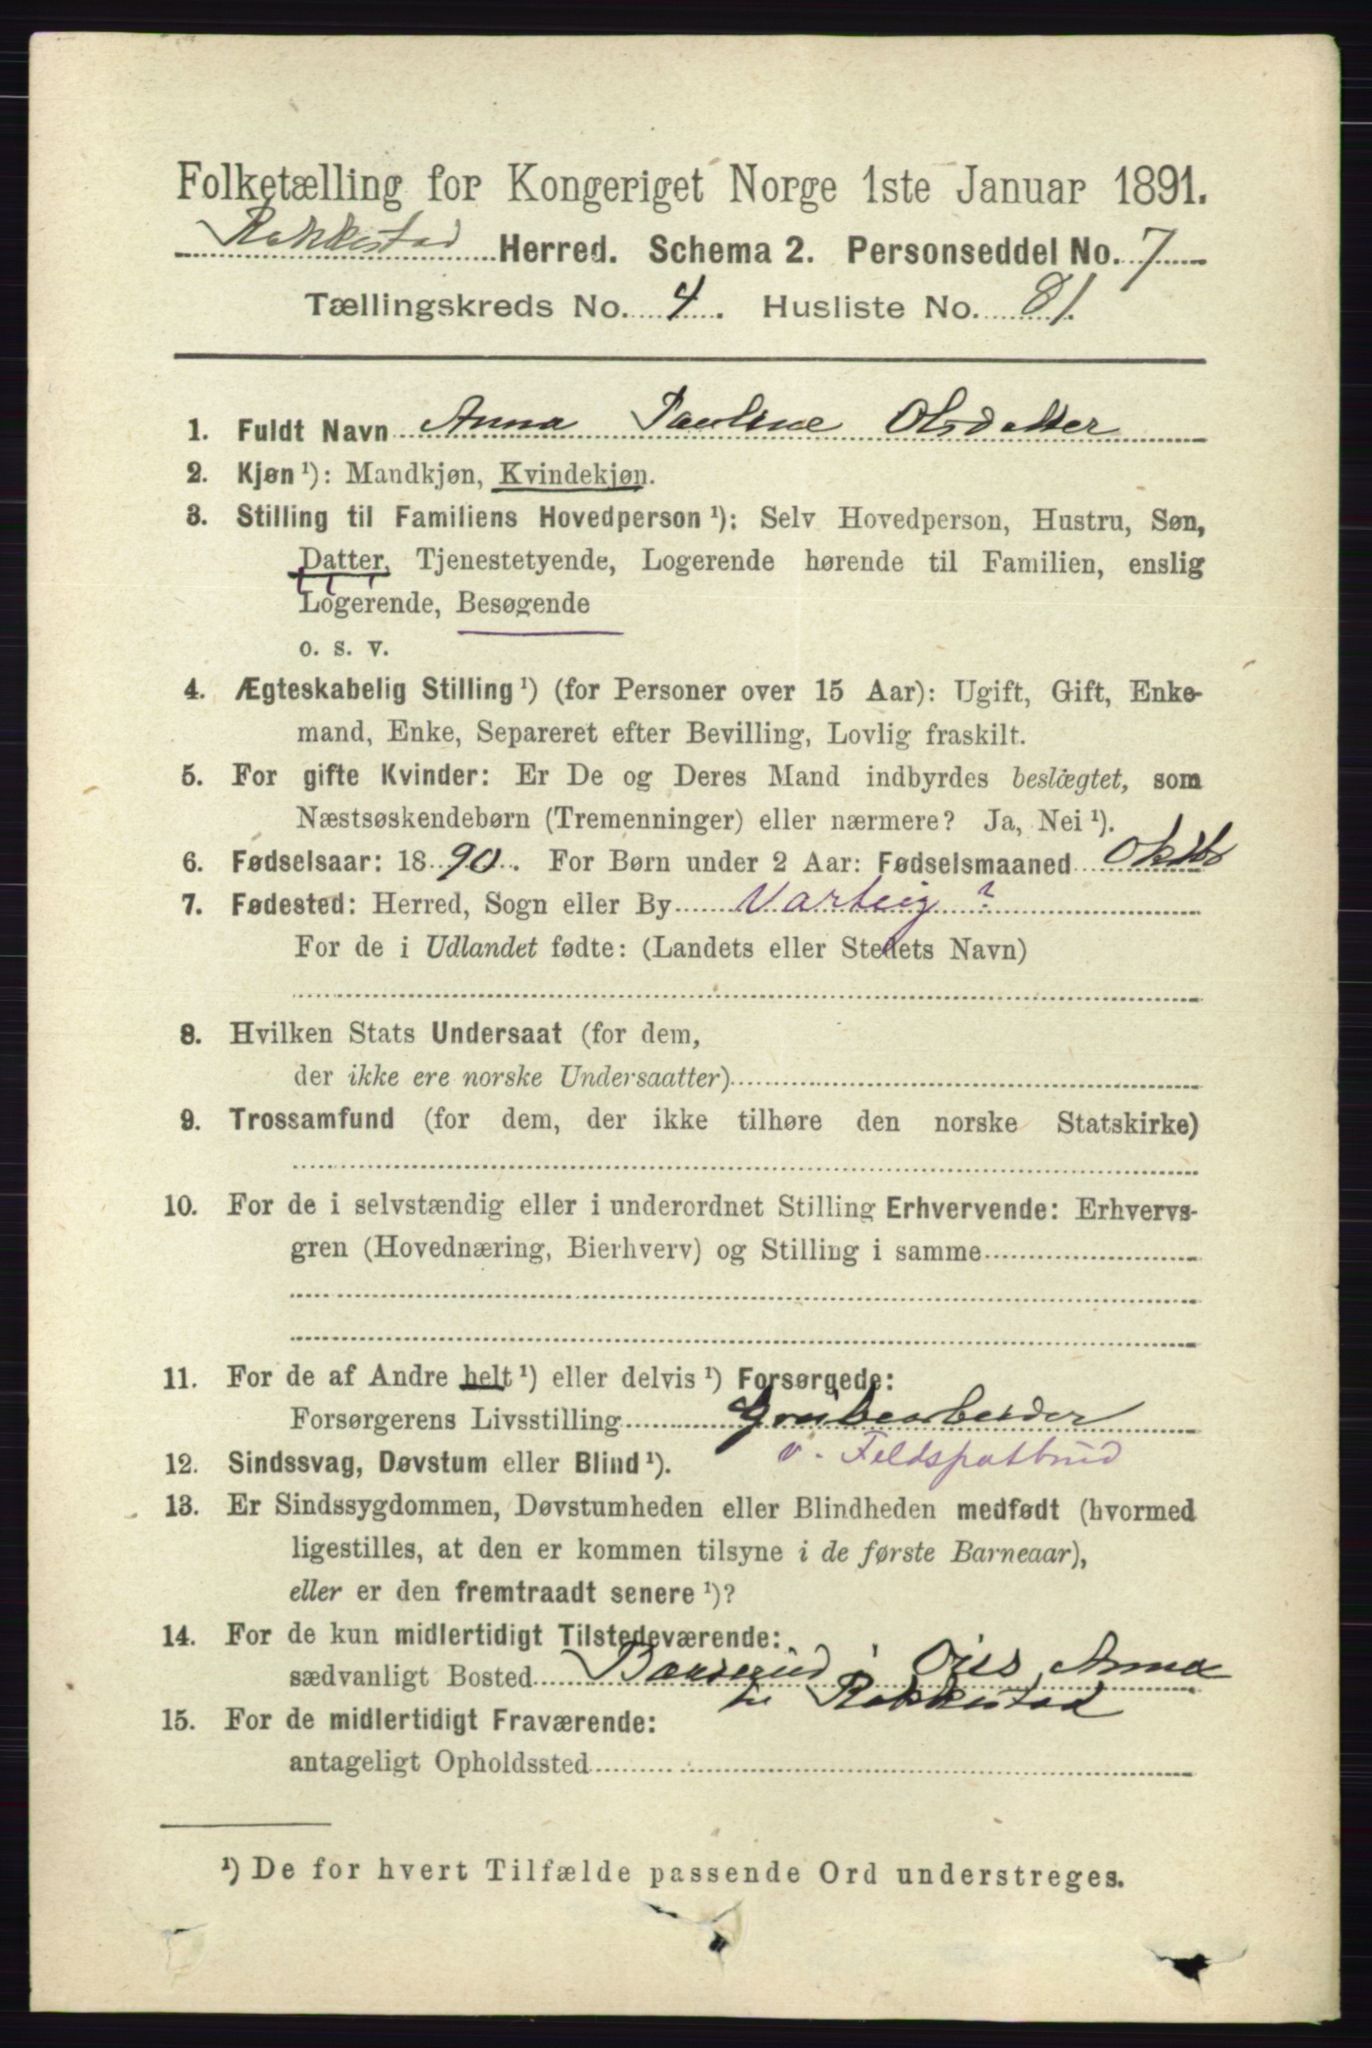 Folketælling for Kongeriget Norge 1ste Januar 1891.
Rakkestad Herred. Schema 2. Personseddel No. 7
Tællingskreds No. 4. Husliste No. 81.
1. Fuldt Navn Anna Pauline Olsdatter
2. Kjøn ¹): Mandkjøn, Kvindekjøn.
3. Stilling til Familiens Hovedperson ¹): Selv Hovedperson, Hustru, Søn,
Datter, Tjenestetyende, Logerende hørende til Familien, enslig
Logerende, Besøgende
o. s. v.
4. Ægteskabelig Stilling ¹) (for Personer over 15 Aar): Ugift, Gift, Enke-
mand, Enke, Separeret efter Bevilling, Lovlig fraskilt.
5. For gifte Kvinder: Er De og Deres Mand indbyrdes beslægtet, som
Næstsøskendebørn (Tremenninger) eller nærmere? Ja, Nei ¹).
6. Fødselsaar: 1890. For Børn under 2 Aar: Fødselsmaaned Oktbr
7. Fødested: Herred, Sogn eller By Varteig ?
For de i Udlandet fødte: (Landets eller Stedets Navn)
8. Hvilken Stats Undersaat (for dem,
der ikke ere norske Undersaatter)
9. Trossamfund (for dem, der ikke tilhøre den norske Statskirke)
10. For de i selvstændig eller i underordnet Stilling Erhvervende: Erhvervs-
gren (Hovednæring, Bierhverv) og Stilling i samme
11. For de af Andre helt ¹) eller delvis ¹) Forsørgede:
Forsørgerens Livsstilling Grubearbeider
v. Feldspatbrud
12. Sindssvag, Døvstum eller Blind ¹).
13. Er Sindssygdommen, Døvstumheden eller Blindheden medfødt (hvormed
ligestilles, at den er kommen tilsyne i de første Barneaar),
eller er den fremtraadt senere ¹)?
14. For de kun midlertidigt Tilstedeværende:
sædvanligt Bosted i Anna
Rakkestad
15. For de midlertidigt Fraværende:
antageligt Opholdssted
¹) De for hvert Tilfælde passende Ord understreges.